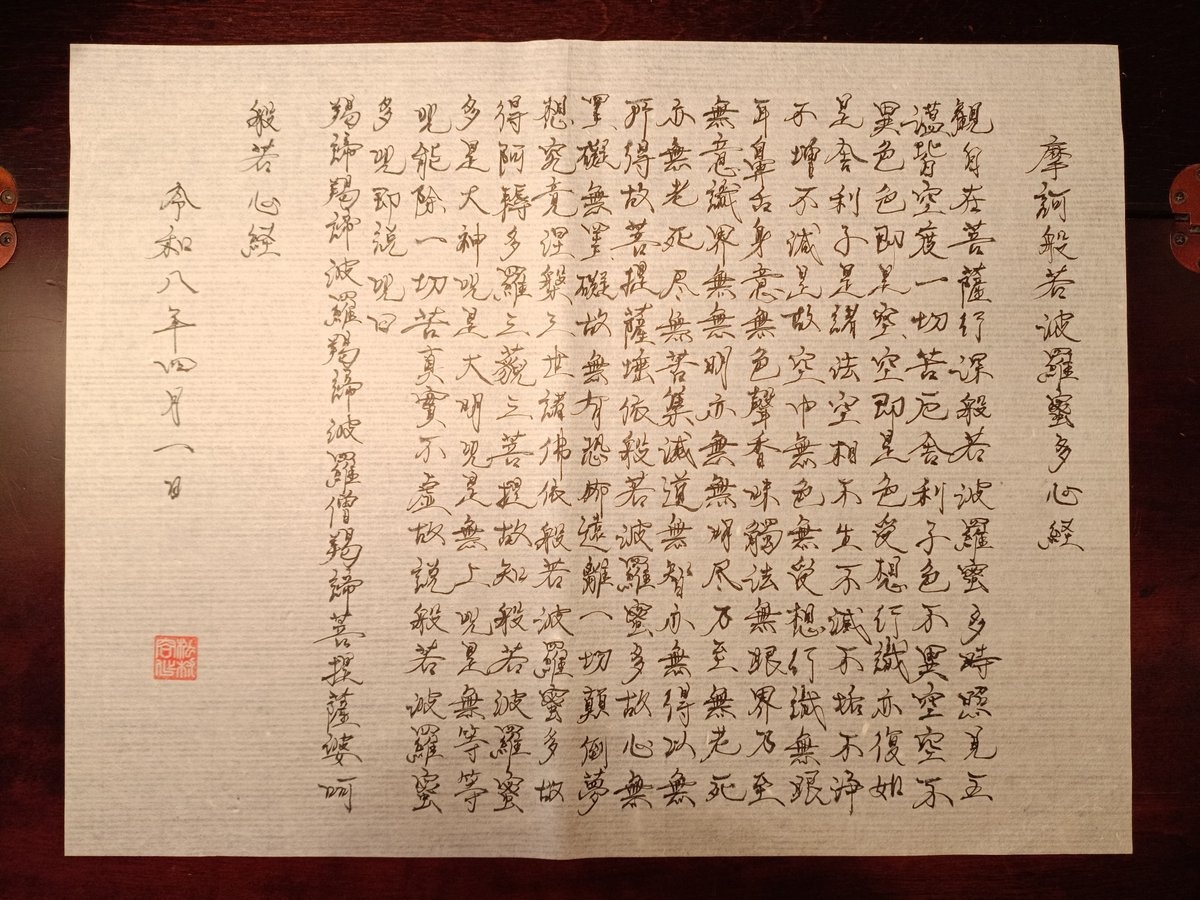 摩訶般若波羅蜜多心経
觀自在菩薩行深般若波羅蜜多時照見五
蘊皆空度一切苦厄舎利子色不異空空不
異色色即是空空即是色受想行識亦復如
是舎利子是諸法空相不生不滅不垢不浄
不増不減是故空中無色無受想行識無眼
耳鼻舌身意無色聲香味觸法無眼界乃至
無意識界無無明亦無無明尽乃至無老死
亦無老死尽無苦集滅道無智亦無得以無
所得故菩提薩埵依般若波羅蜜多故心無
罣礙無罣礙故無有恐怖遠離一切顛倒夢
想究竟涅槃三世諸佛依般若波羅蜜多故
得阿耨多羅三藐三菩提故知般若波羅蜜
多是大神呪是大明呪是無上呪是無等等
呪能除一切苦真實不虚故説般若波羅蜜
多呪即説呪曰
羯諦羯諦波羅羯諦波羅僧羯諦菩提薩婆呵
般若心経
令和八年四月一日